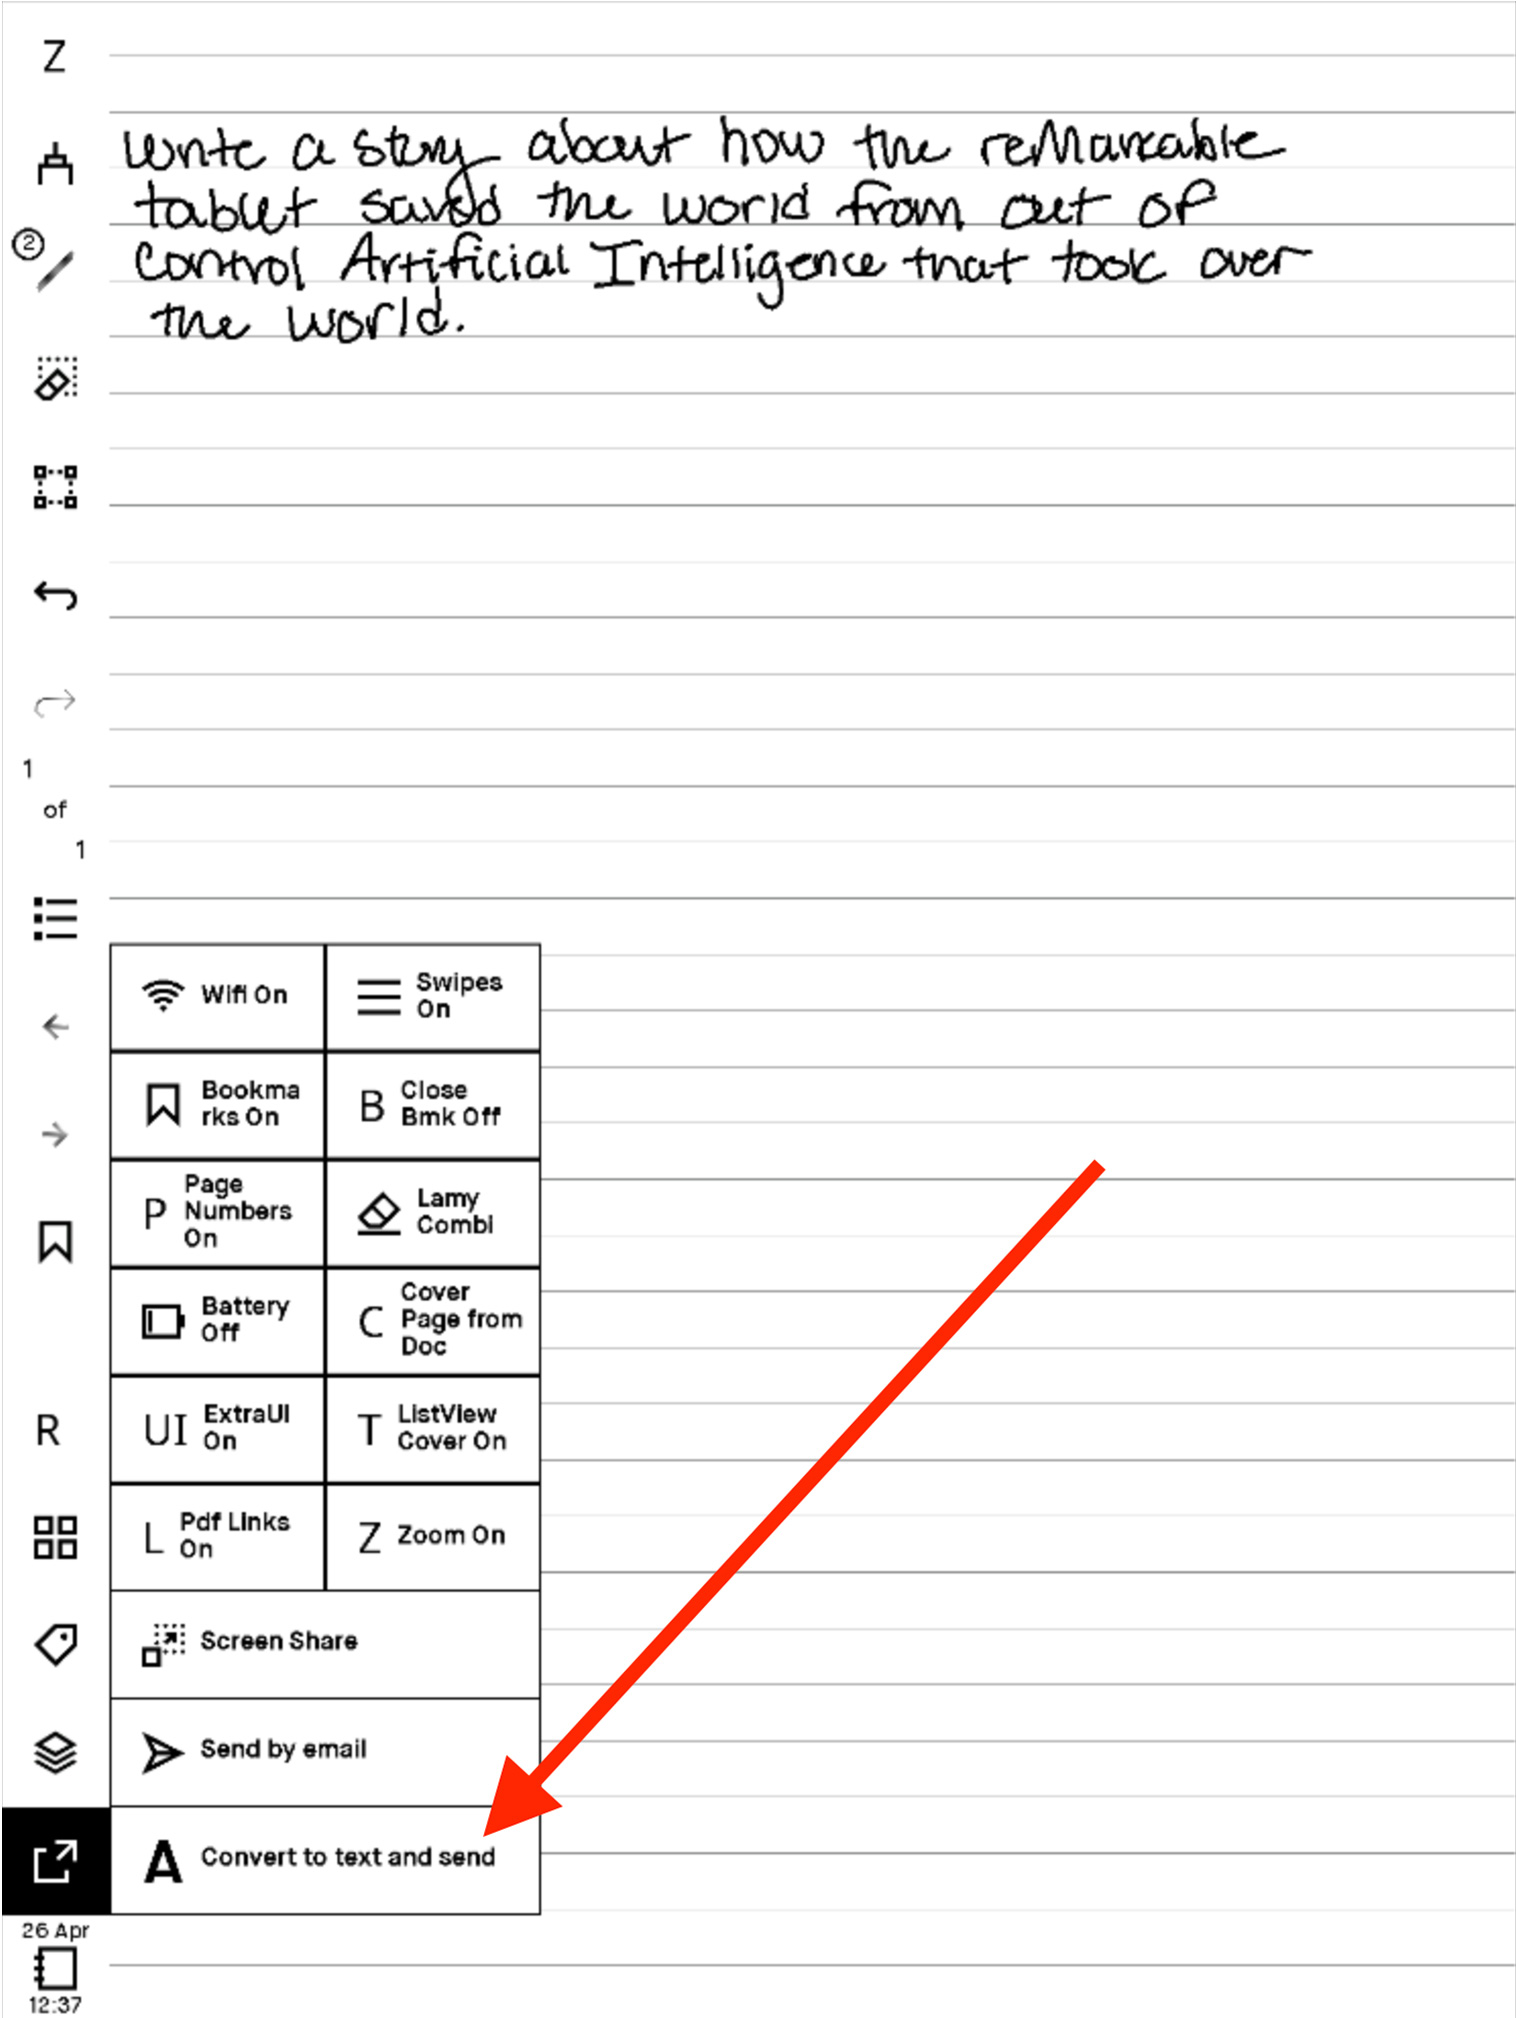 Z
Write a story about how the reMarkable
tablet saved the world from out of
②
Control Artificial Intelligence that took over
the world.
1
of
1
Wifi On
Swipes
On
Bookma
rks On
B
Close
Bmk Off
P
Page
Numbers
On
Lamy
Combi
Battery
Off
C
Cover
Page from
Doc
R
UI
ExtraUI
On
T
ListView
Cover On
L
Pdf Links
On
Z
Zoom On
Screen Share
Send by email
A
Convert to text and send
26 Apr
12:37